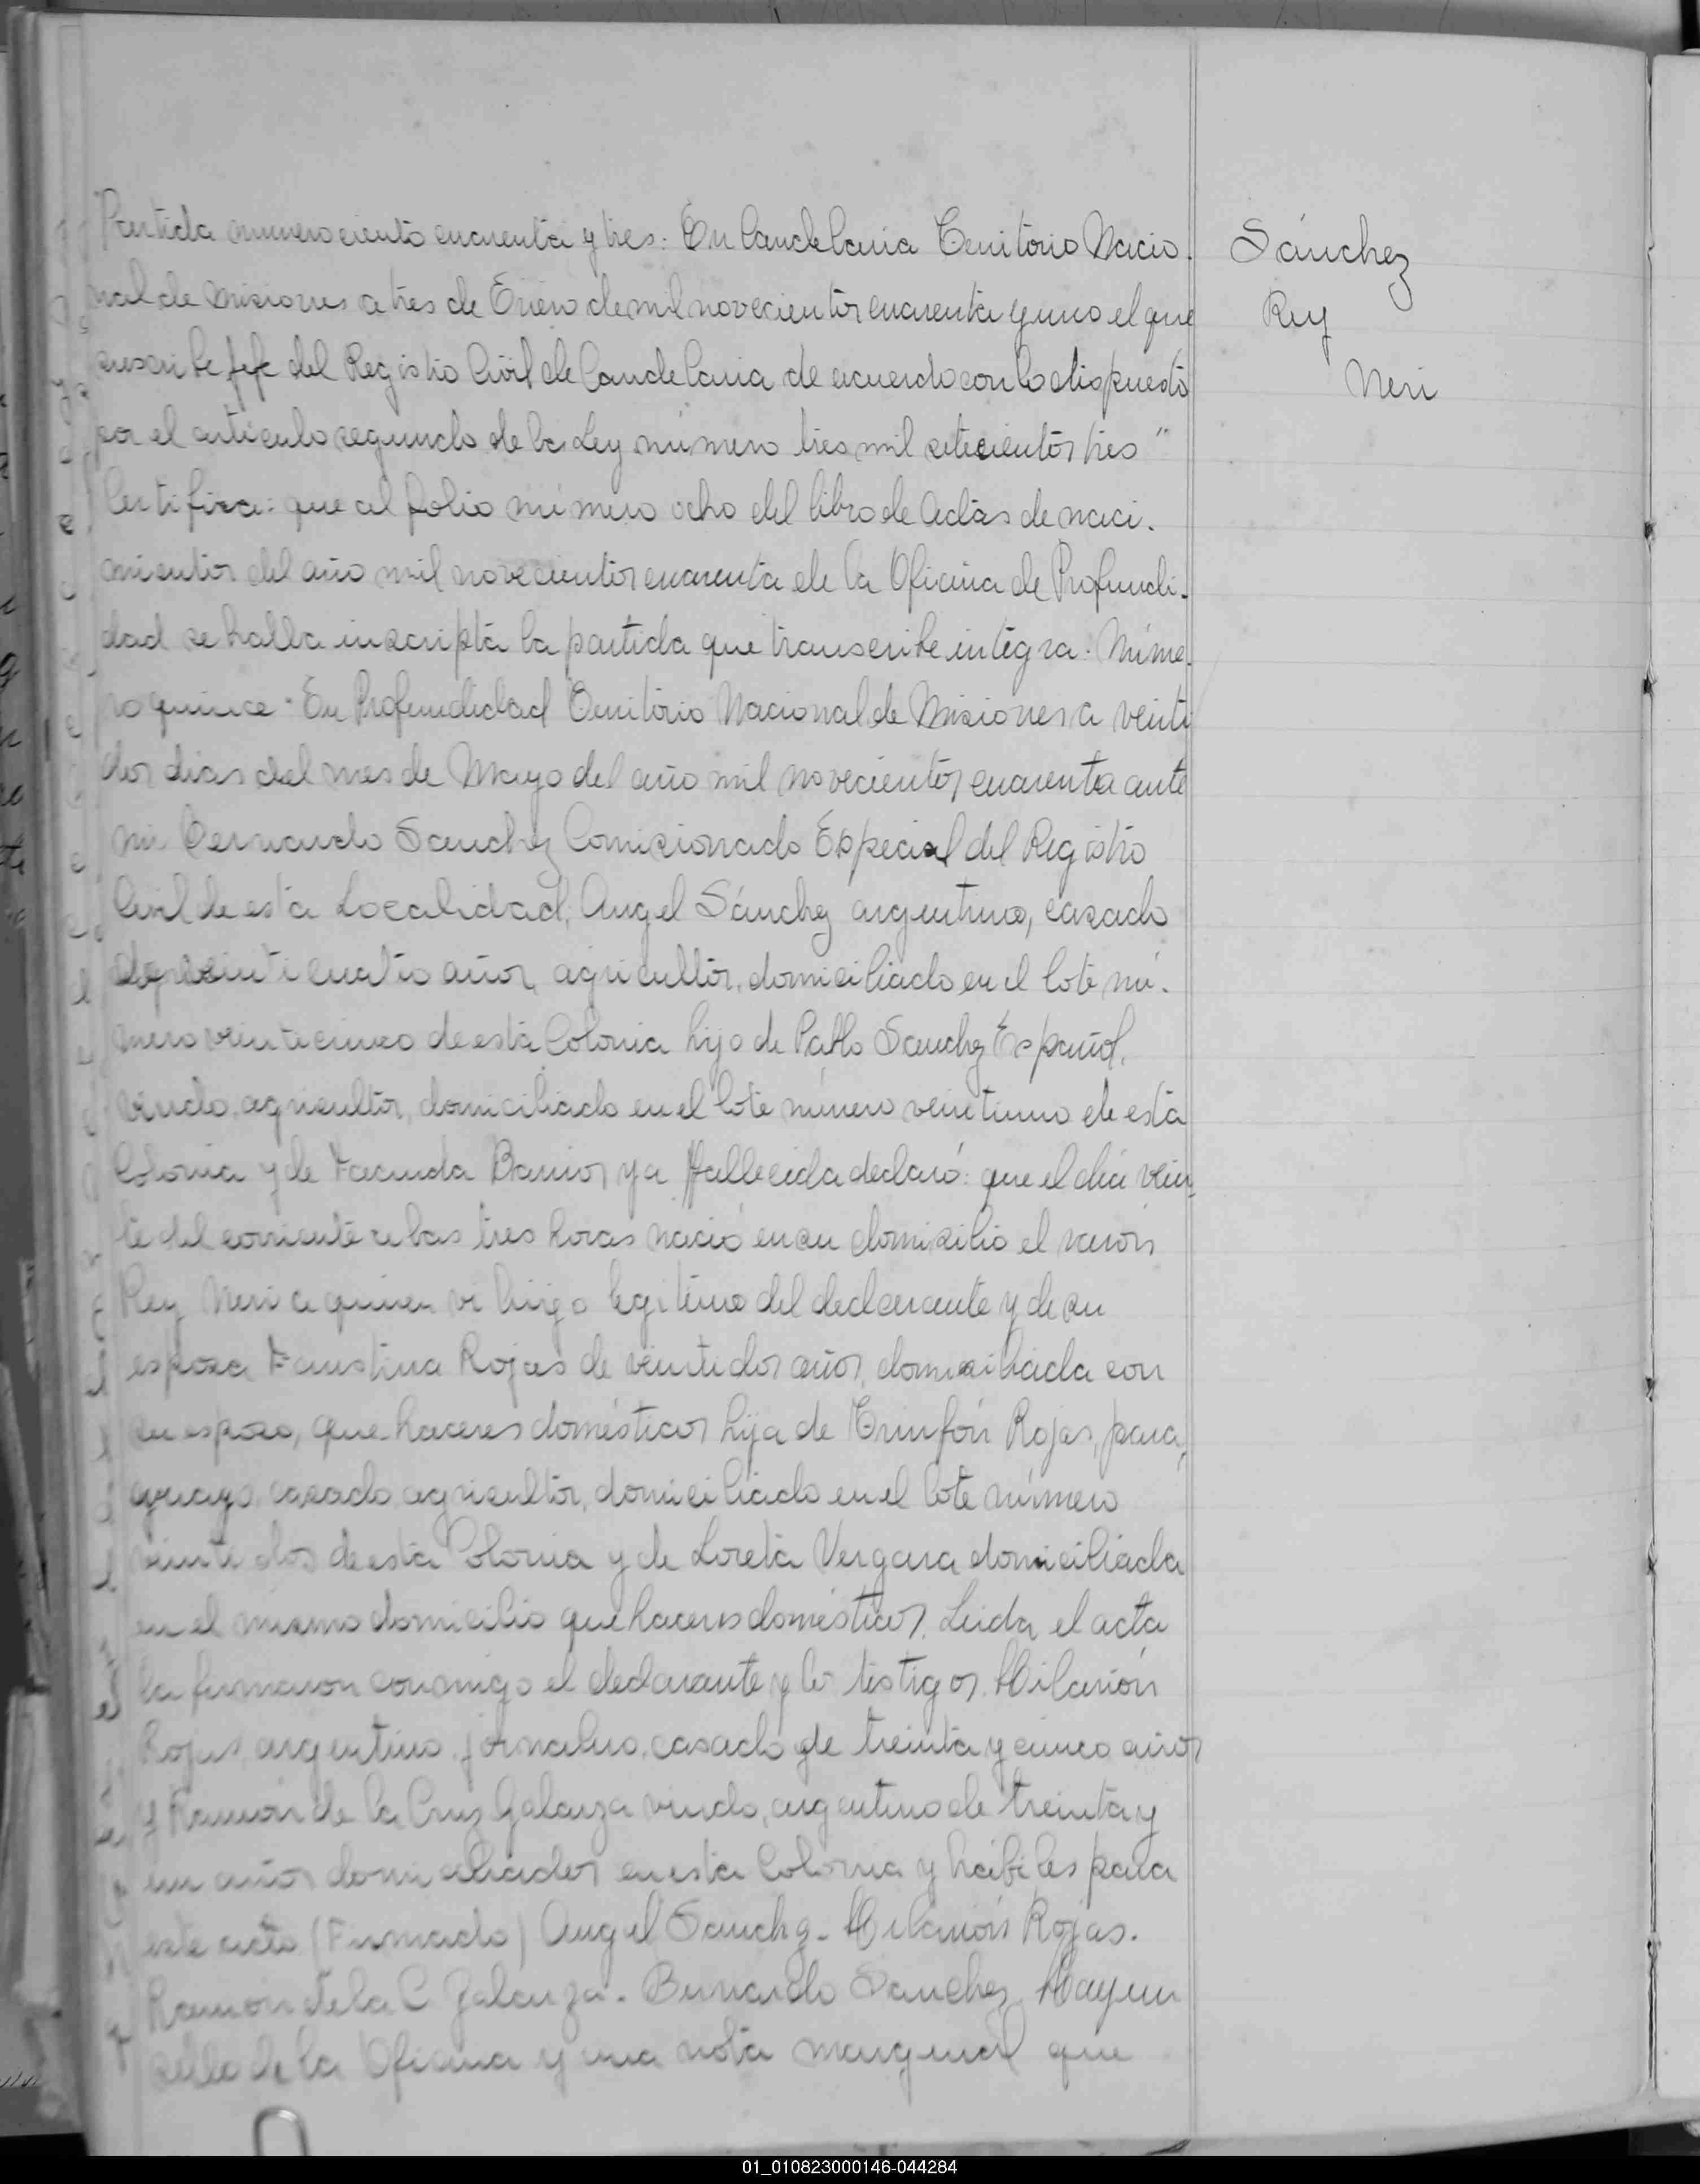 Partida numero ciento cuarenta y tres: En Candelaria Territorio Nacio-
nal de Misiones a tres de Enero de mil novecientos cuarenta y uno el que
suscribe jefe del Registro Civil de Candelaria de acuerdo con lo dispuesto
por el artículo segundo de la Ley número tres mil setecientos tres"
Certifica: que al folio número ocho del libro de Actas de naci-
mientos del año mil novecientos cuarenta de la Oficina de Profundi-
dad se halla inscripta la partida que transcribe integra. Núme-
ro quince. En Profundidad Territorio Nacional de Misiones a veinti
dos dias del mes de Mayo del año mil novecientos cuarenta ante
mi Bernardo Sanchez Comisionado Especial del Registro
Civil de esta Localidad, Angel Sánchez argentino, casado
de veinticuatro años, agricultor, domiciliado en el lote nú-
mero veinticinco de esta Colonia hijo de Pablo Sanchez Español,
viudo, agricultor, domiciliado en el lote número veintiuno de esta
Colonia y de Facunda Barrios ya fallecida declaró: que el día vein-
te del corriente a las tres horas nació en su domicilio el varón
Rey Neri a quien vi hijo legitimo del declarante y de su
esposa Faustina Rojas de veintidos años, domiciliada con
su esposo, que haceres domésticos hija de Trinfón Rojas, para-
guayo, casado, agricultor, domiciliado en el lote número
veintidos de esta Colonia y de Loreta Vergara domiciliada
en el mismo domicilio que haceres domésticos. Leida el acta
la firmaron conmigo el declarante y lo testigos. Hilarión
Rojas, argentino, jornalero, casado de treinta y cinco años
y Ramón de la Cruz Galarza viudo, argentino de treinta y
un años domiciliados en esta Colonia y hábiles para
este acto (Firmado) Angel Sanchez - Hilarión Rojas.
Ramon de la C Galarza - Bernardo Sanchez. Hay un
sello de la Oficina y una nota marginal que
Sánchez
Rey
Neri
01_010823000146-044284